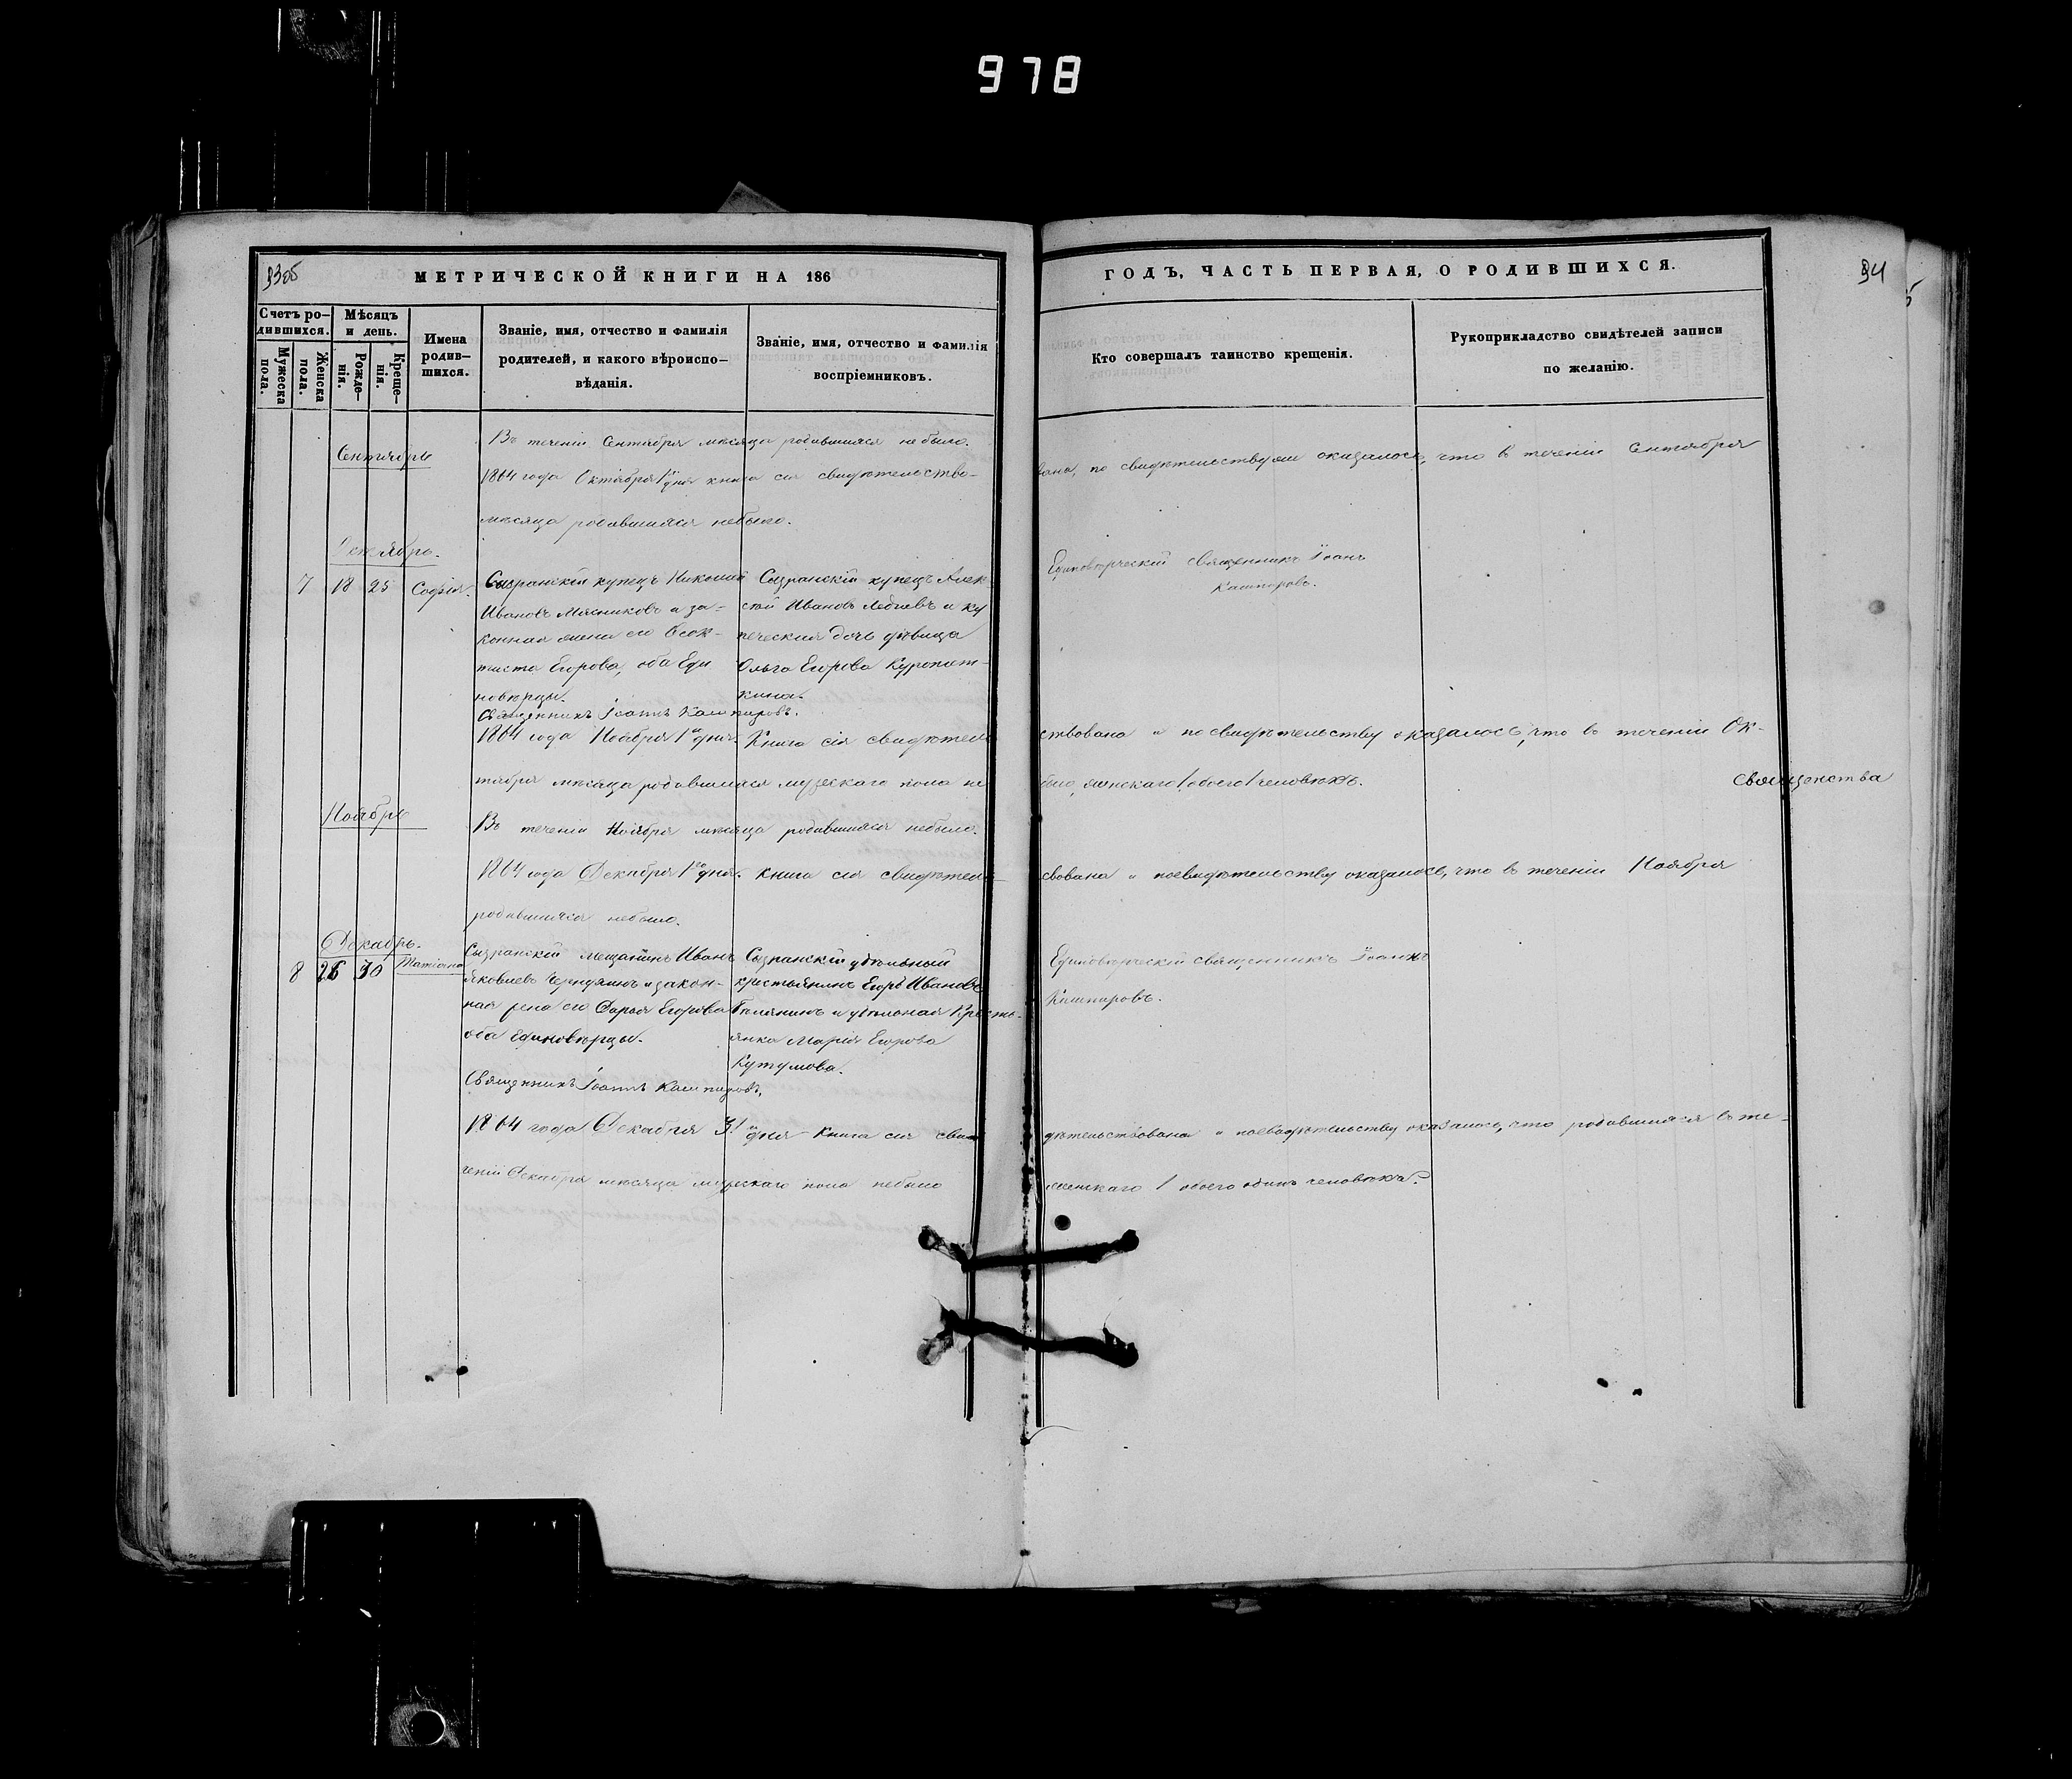 978
МЕТРИЧЕСКОЙ КНИГИ НА 186
ГОДЪ, ЧАСТЬ ПЕРВАЯ, О РОДИВШИХСЯ.
34
Счетъ ро-
дившихся.
Мужеска
пола.
Женска
пола.
Мѣсяцъ
и день.
Рожде-
нія.
Креще-
нія.
Имена
родив-
шихся.
Званіе, имя, отчество и фамилія
родителей, и какого вѣроиспо-
вѣданія.
Званіе, имя, отчество и фамилія
воспріемниковъ.
Кто совершалъ таинство крещенія.
Рукоприкладство свидѣтелей записи
по желанію.
Сентябрь
Въ теченіи Сентября мѣсяца родившихся небыло.
1864 года Октября 1го дня книга сія свидѣтельство-
вана, по свидѣтельству оказалось, что в теченіи Сентября
мѣсяца родившихся небыло.
Октябрь.
7 18 25 Софія.
Сызранскій купецъ Николай
Ивановъ Мясниковъ и за-
конная жена его Ѳеок-
тиста Егорова, оба Еди
новѣрцы.
Священникъ Іоаннъ Кашпировъ.
Сызранскій купецъ Алек-
сѣй Ивановъ и ку
печеская дочь дѣвица
Ольга Егорова Куропат-
кина.
Единовѣрческій священникъ Іоаннъ
Кашпировъ.
1864 года Ноября 1го дня. Книга сія свидѣтель
ствована и по свидѣтельству оказалось, что въ теченіи Ок-
тября мѣсяца родившихся мужескаго пола не
было, женскаго 1, обоего 1 человѣкъ.
Священства
Ноябрь
Въ теченіи Ноября мѣсяца родившихся небыло.
1864 года Декабря 1го дня. книга сія свидѣтель-
ствована и посвидѣтельству оказалось, что въ теченіи Ноября
родившихся небыло.
Декабрь.
8 26 30 Татіана
Сызранскій мещанинъ Иванъ
Яковлевъ и закон-
ная жена его Дарья Егорова
оба Единовѣрцы.
Священникъ Іоаннъ Кашпировъ.
Сызранскій удѣльный
крестьянинъ Егоръ Ивановъ
и удѣльная Кресть-
янка Марія Егорова
Кутумова.
Единовѣрческій священникъ Іоаннъ
Кашпировъ.
1864 года Декабря 31го дня книга сія сви
дѣтельствована и посвидѣтельству оказалось, что родившихся въ те-
ченіи Декабря мѣсяца мужескаго пола небыло
женскаго 1 обоего одинъ человѣкъ.